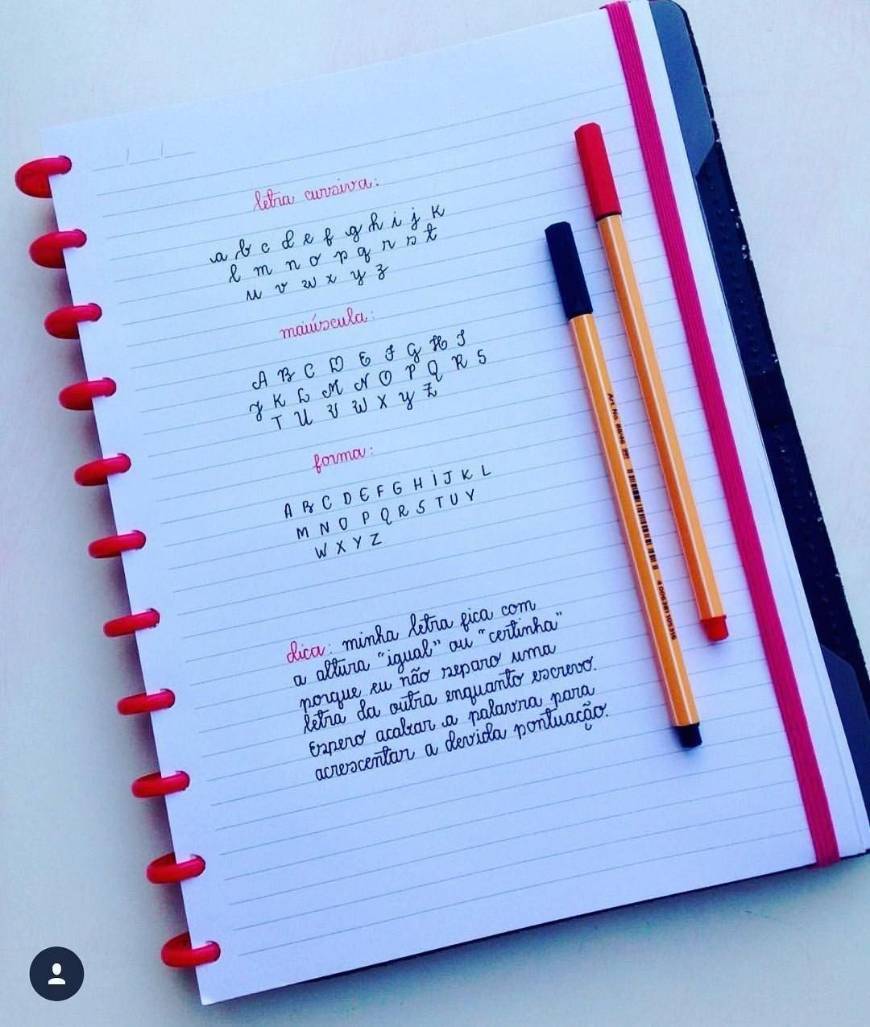 letra cursiva:
a b c d e f g h i j k
l m n o p q r s t
u v w x y z
maiúscula:
A B C D E F G H I
J K L M N O P Q R S
T U V W X Y Z
forma:
A B C D E F G H I J K L
M N O P Q R S T U V
W X Y Z
dica: minha letra fica com
a altura "igual" ou "certinha"
porque eu não separo uma
letra da outra enquanto escrevo.
Espero acabar a palavra para
acrescentar a devida pontuação.